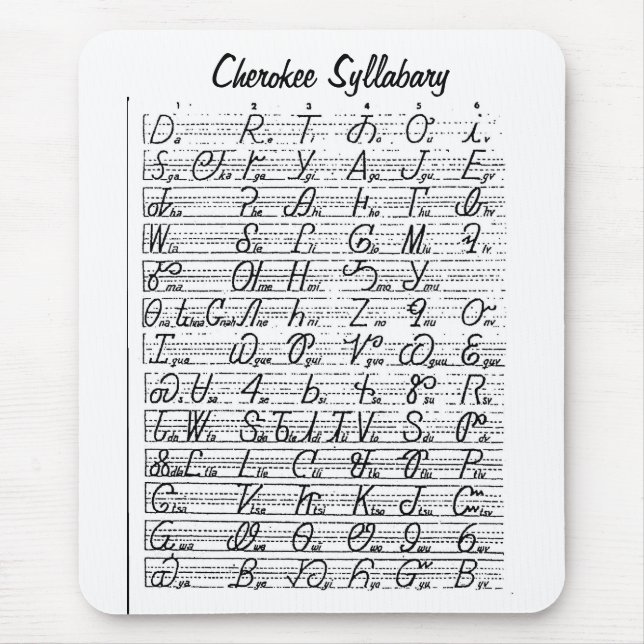 Cherokee Syllabary
1 2 3 4 5 6
Ꭰ a Ꭱ e Ꭲ i Ꭳ o Ꭴ u Ꭵ v
Ꭶ ga Ꭷ ka Ꭸ ge Ꭹ gi Ꭺ go Ꭻ gu Ꭼ gv
Ꭽ ha Ꭾ he Ꭿ hi Ꮀ ho Ꮁ hu Ꮂ hv
Ꮃ la Ꮄ le Ꮅ li Ꮆ lo Ꮇ lu Ꮈ lv
Ꮉ ma Ꮊ me Ꮋ mi Ꮌ mo Ꮍ mu
Ꮎ na Ꮏ hna Ꮐ nah Ꮑ ne Ꮒ ni Ꮓ no Ꮔ nu Ꮕ nv
Ꮖ qua Ꮗ que Ꮘ qui Ꮙ quo Ꮚ quu Ꮛ quv
Ꮝ s Ꮜ sa Ꮞ se Ꮟ si Ꮠ so Ꮡ su Ꮢ sv
Ꮣ da Ꮤ ta Ꮥ de Ꮦ te Ꮧ di Ꮨ ti Ꮩ do Ꮪ du Ꮫ dv
Ꮬ dla Ꮭ tla Ꮮ tle Ꮯ tli Ꮰ tlo Ꮱ tlu Ꮲ tlv
Ꮳ tsa Ꮴ tse Ꮵ tsi Ꮶ tso Ꮷ tsu Ꮸ tsv
Ꮹ wa Ꮺ we Ꮻ wi Ꮼ wo Ꮽ wu Ꮾ wv
Ꮿ ya Ᏸ ye Ᏹ yi Ᏺ yo Ᏻ yu Ᏼ yv